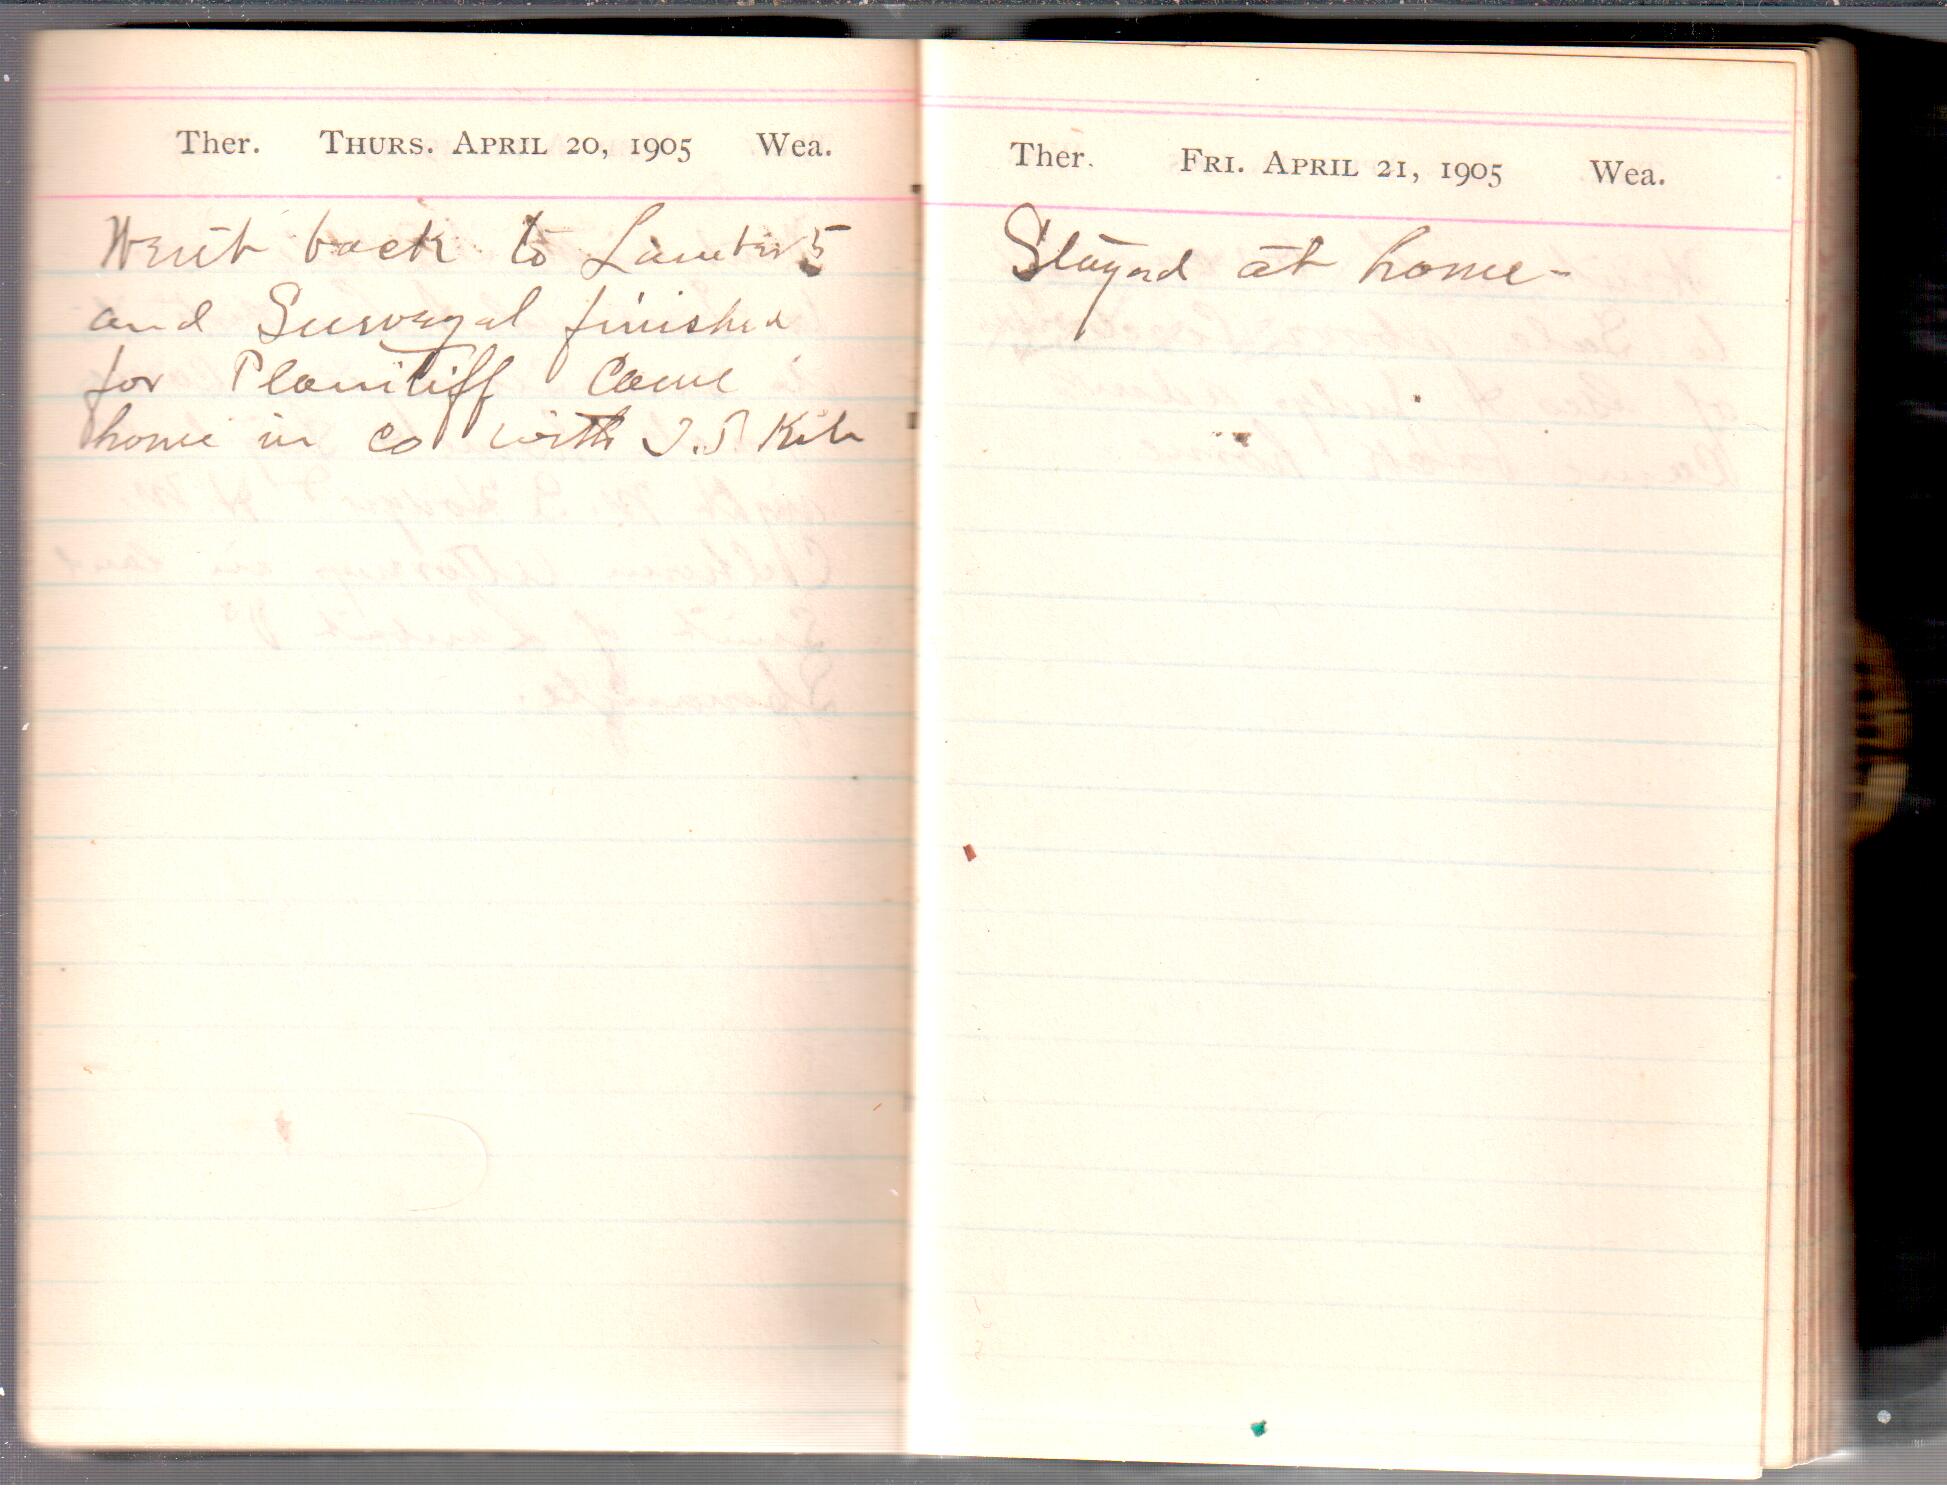 Ther. THURS. APRIL 20, 1905 Wea.
Went back to Lamberts
and Surveyed finished
for Plaintiff Came
home in co with J.T.
Ther. FRI. APRIL 21, 1905 Wea.
Stayed at home-